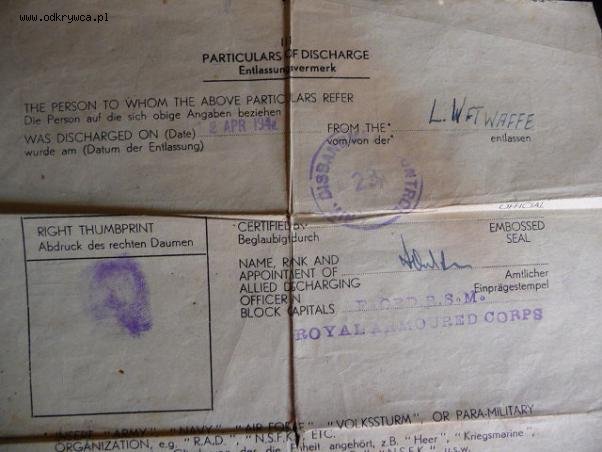 www.odkrywca.pl
II
PARTICULARS OF DISCHARGE
Entlassungsvermerk
THE PERSON TO WHOM THE ABOVE PARTICULARS REFER
Die Person auf die sich obige Angaben beziehen
WAS DISCHARGED ON (Date) 2 APR 1946 FROM THE* L. WFTWAFFE
wurde am (Datum der Entlassung) vom/von der* entlassen
DISBAN CONTROL
23
RIGHT THUMBPRINT
Abdruck des rechten Daumen
CERTIFIED BY
Beglaubigt durch
OFFICIAL
EMBOSSED
SEAL
NAME, RANK AND
APPOINTMENT OF
ALLIED DISCHARGING
OFFICER IN
BLOCK CAPITALS
Amtlicher
Einprägestempel
R.S.M.
ROYAL ARMOURED CORPS
* INSERT "ARMY", "NAVY", "AIR FORCE", "VOLKSSTURM", OR PARA-MILITARY
ORGANIZATION, e.g. "R.A.D.", "N.S.F.K.", ETC.
der die Einheit angehört, z.B. "Heer", "Kriegsmarine",
"N.S.F.K.", u.s.w.